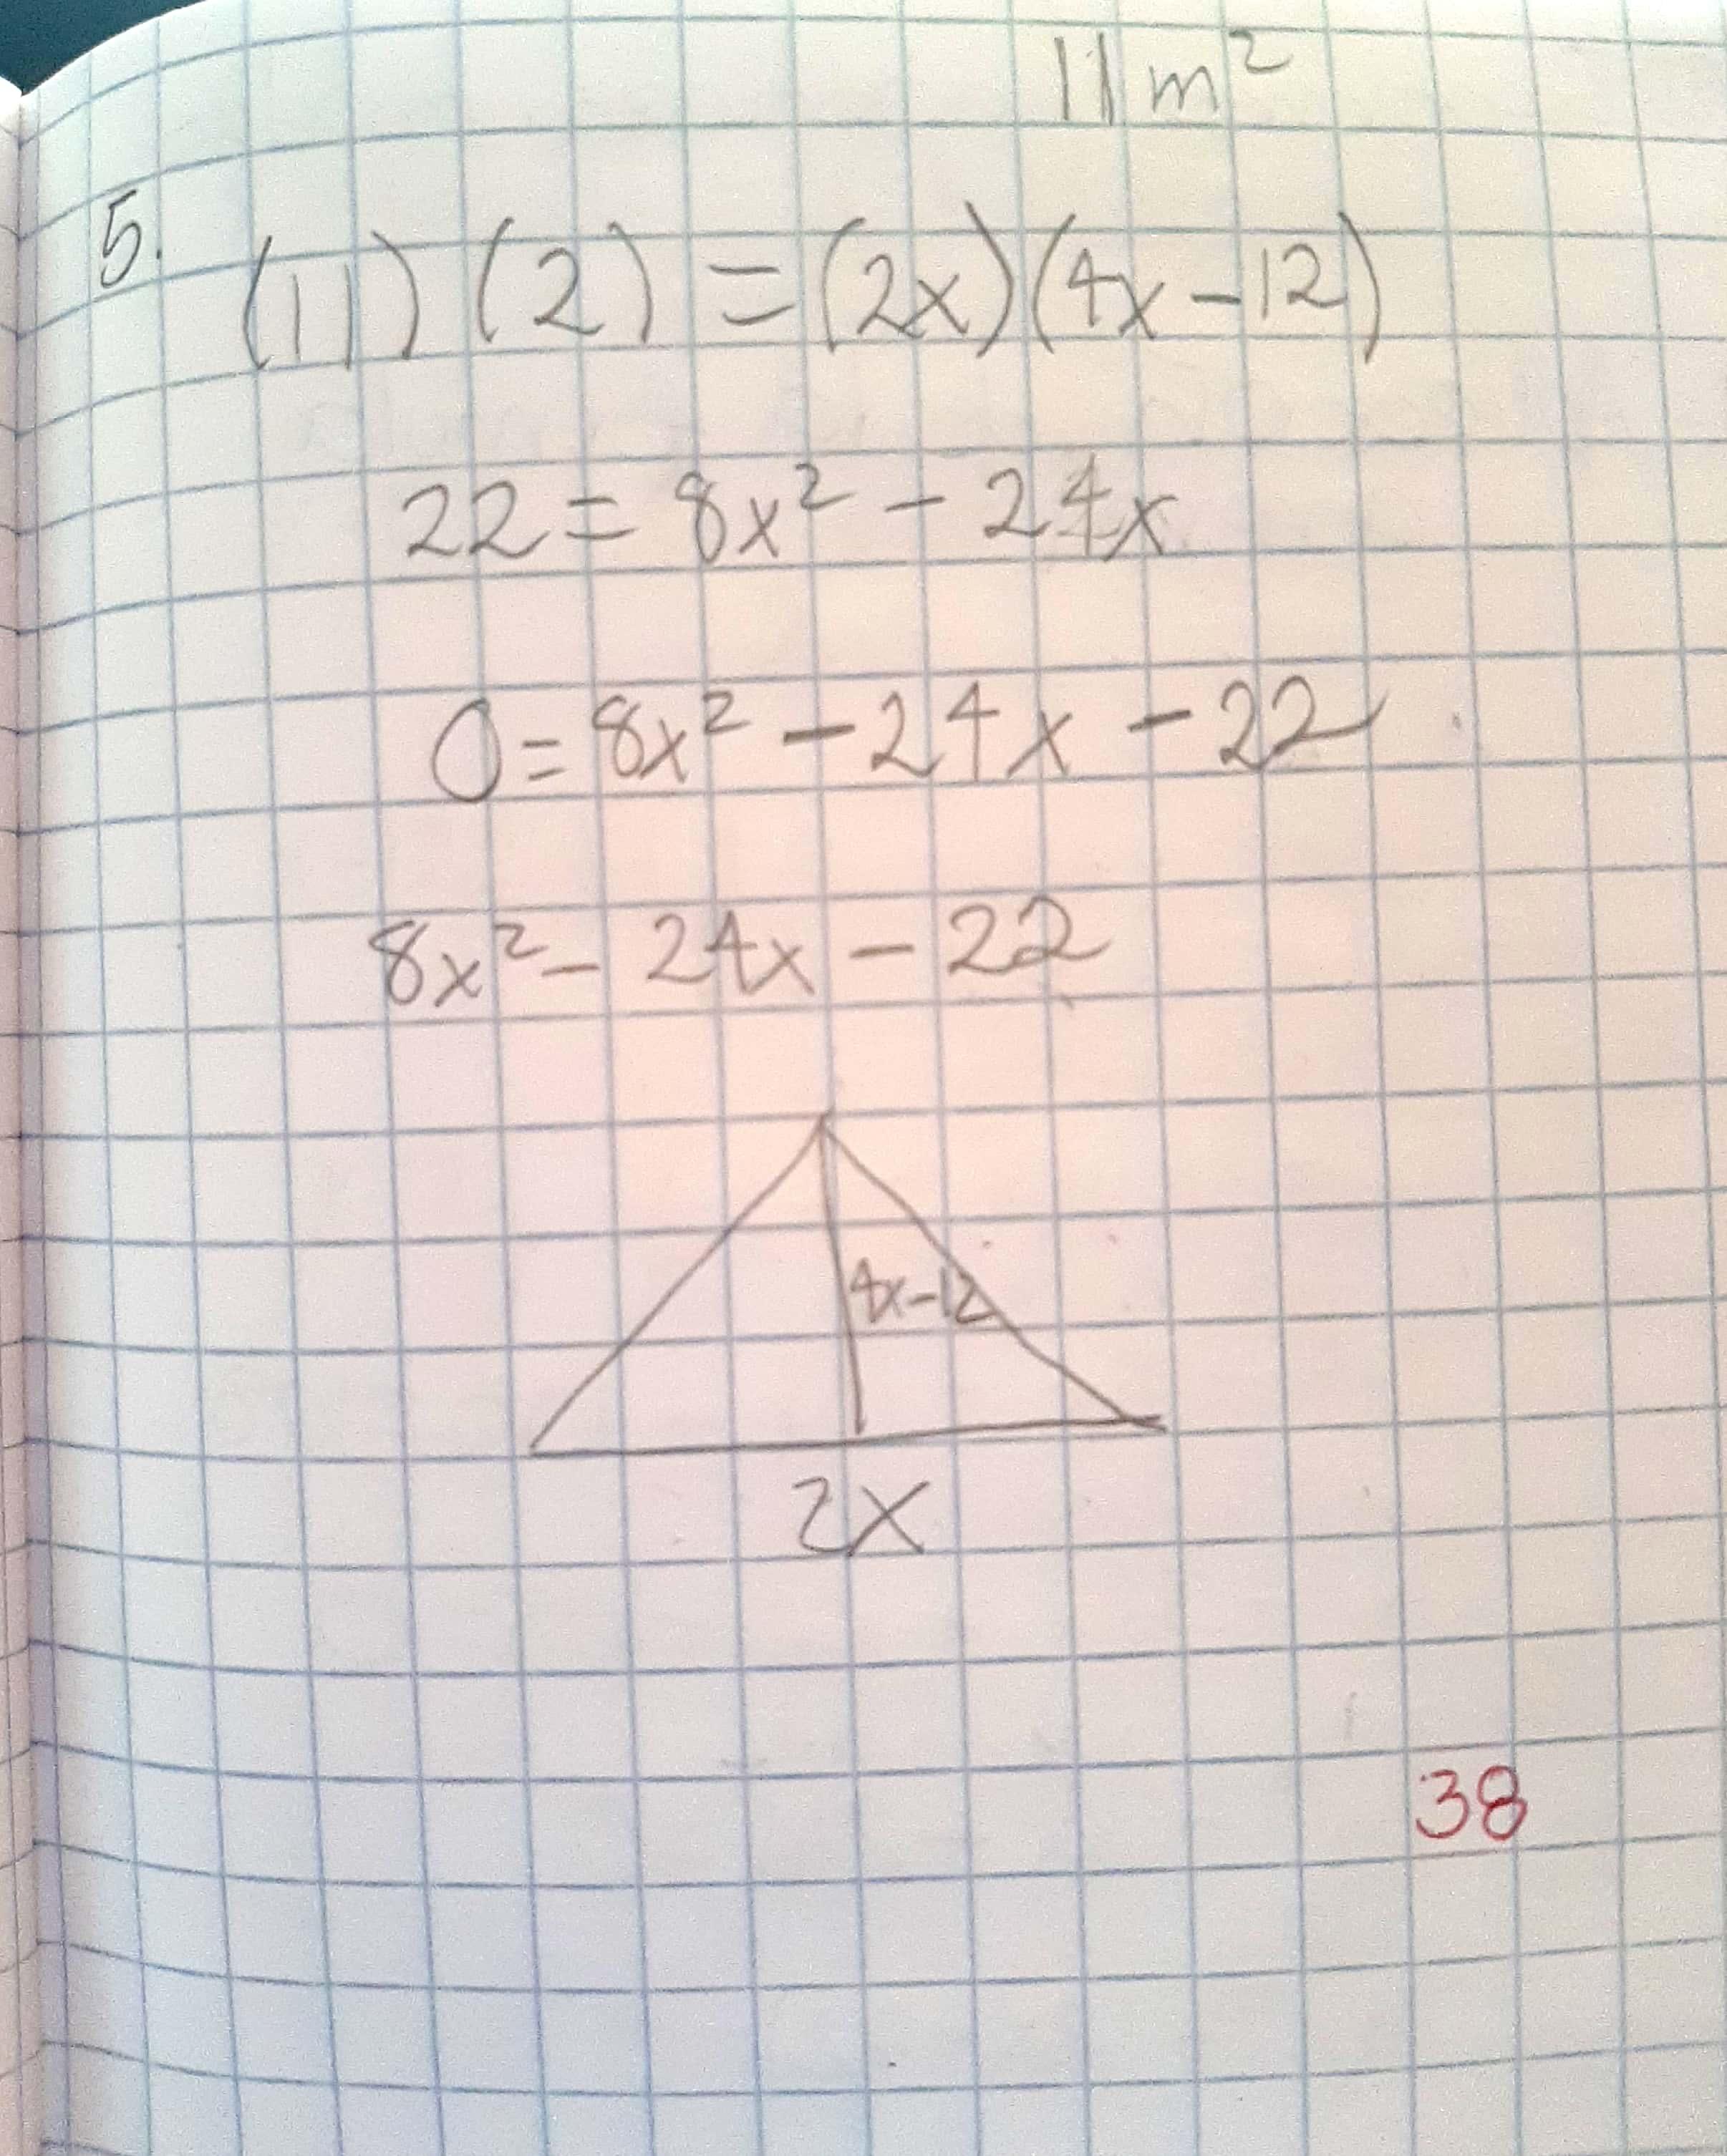 11 m²
5. (11) (2) = (2x)(4x-12)
22 = 8x² - 24x
0 = 8x² - 24x - 22
8x² - 24x - 22
4x-12
2x
38